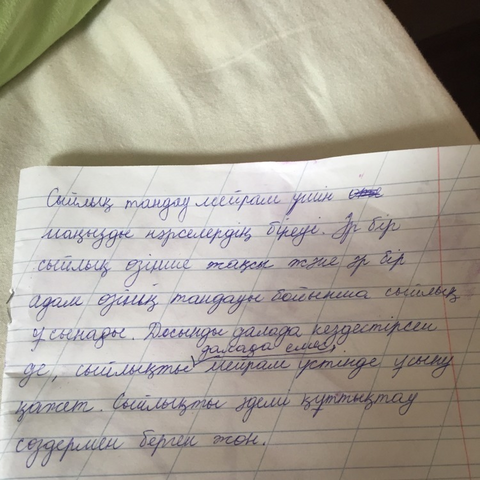 Сыйлық таңдау мейрам үшін
маңызды нәрселердің біреуі. Әр бір
сыйлық өзінше жақсы және әр бір
адам өзінің таңдауы бойынша сыйлық
ұсынады. Досыңды далада кездестірсең
де, сыйлықты далада емес, мейрам үстінде ұсыну
қажет. Сыйлықты әдемі құттықтау
сөздермен берген жөн.